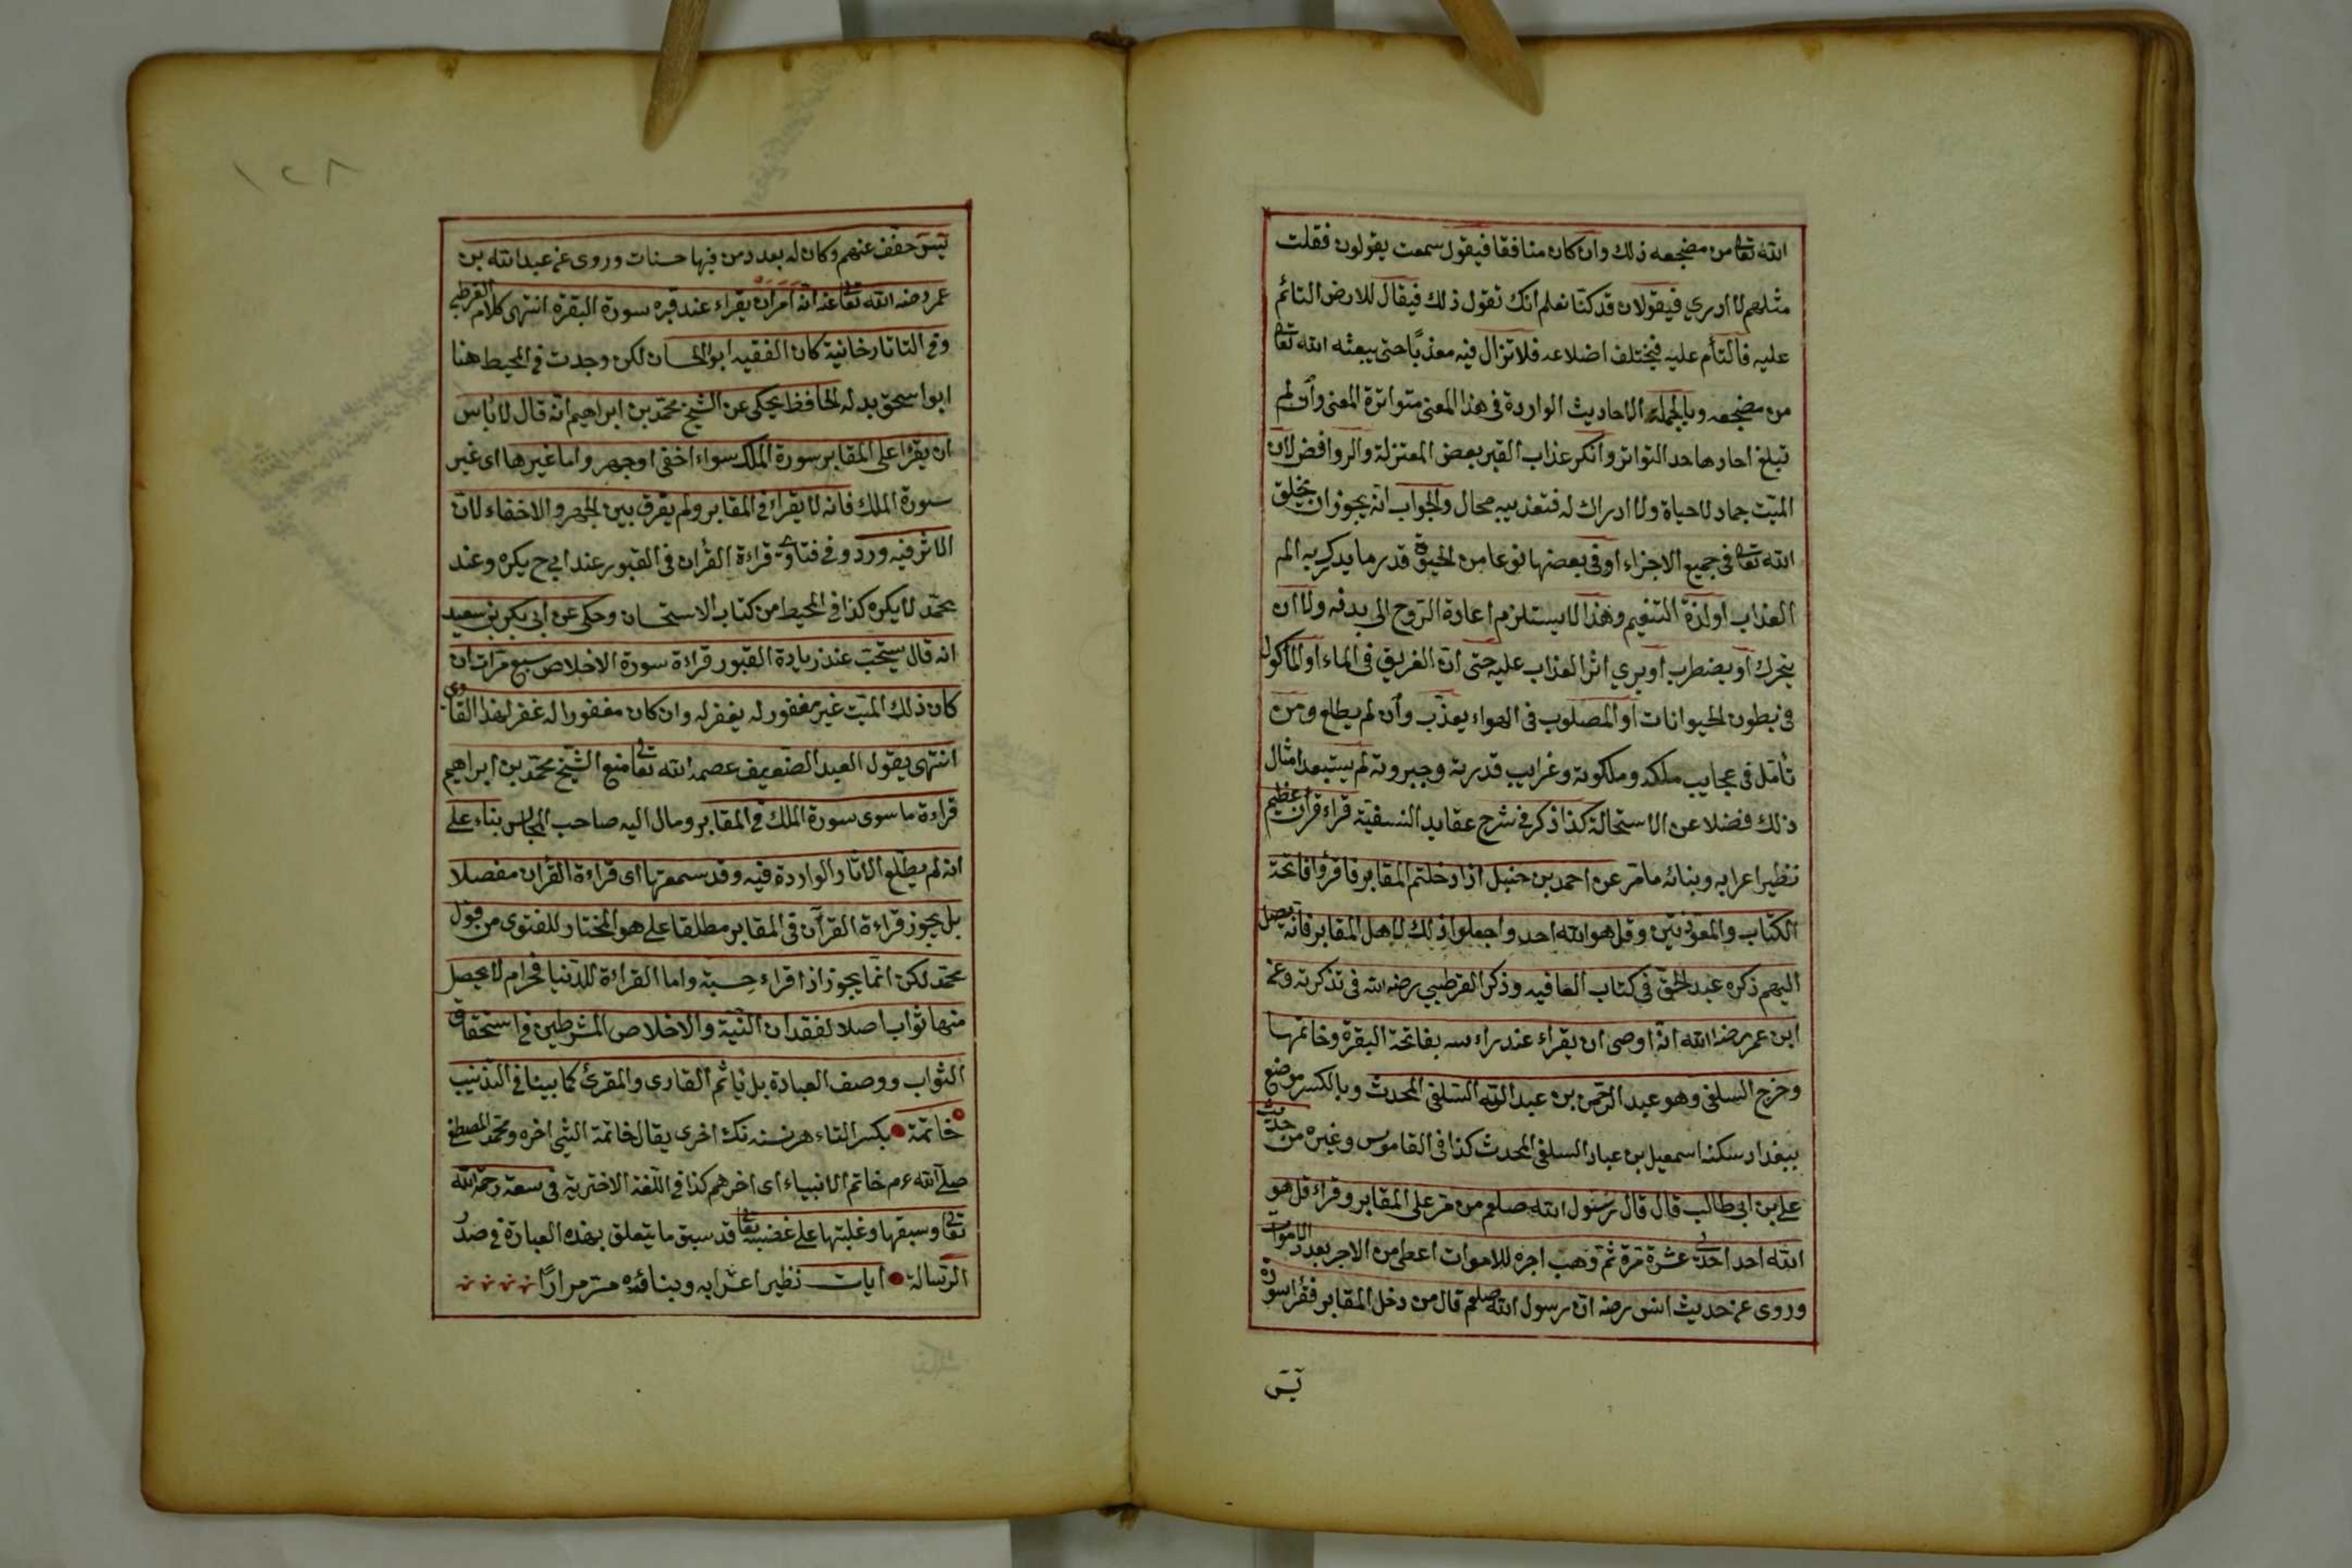 الله تعالى من مضجعه ذلك وان كان منافقا فيقول سمعت يقولون فقلت
مثلهم لا ادري فيقولان قد كنا نعلم انك تقول ذلك فيقال للارض التائم
عليه فالتأم عليه فيختلف اضلاعه فلا تزال فيه معذبًا حتى يبعثه الله تعالى
من مضجعه وبالجملة الاحاديث الواردة في هذا المعنى متواترة المعنى وان لم
تبلغ احادها حد التواتر وانكر عذاب القبر بعض المعتزلة والروافض لان
الميّت جماد لا حياة ولا ادراك له فتعذيبه محال والجواب انه يجوز ان يخلق
الله تعالى في جميع الاجزاء او في بعضها نوعا من الحيوة قدر ما يدرك به الم
العذاب او لذة التنعيم وهذا لا يستلزم اعادة الروح الى بدنه ولا ان
يتحرك او يضطرب او يري اثر العذاب عليه حتى ان الغريق في الماء او الماكول
في بطون الحيوانات او المصلوب في الهواء يعذّب وان لم يطلع ومن
تأمل في عجايب ملكه وملكوته وغرايب قدرته وجبروته لم يستبعد امثال
ذلك فضلا عن الاستحالة كذا ذكر في شرح عقايد النسفية قراء قران عظيم
نظير اعرابه وبنائه ما مر عن احمد بن حنبل اذا دخلتم المقابر فاقرؤا فاتحة
الكتاب والمعوذتين وقل هو الله احد واجعلوا ذلك لاهل المقابر فانه يصل
اليهم ذكره عبد الحق في كتاب العافيه وذكر القرطبي رضه الله في تذكرته وعن
ابن عمر رضه الله انه اوصى ان يقراء عند راءسه بفاتحة البقرة وخاتمتها
وخرج السلفي وهو عبد الرحمن بن عبد الله السلفي المحدث وبالكسر موضع
ببغداد سكنه اسمعيل بن عباد السلفي المحدث كذا في القاموس وغيره من حديث
علي بن ابي طالب قال قال رسول الله صلعم من مر على المقابر وقراء قل هو
الله احد احدى عشرة مرة ثم وهب اجره للاموات اعطى من الاجر بعدد الاموات
وروى عن حديث انس رضه ان رسول الله صلعم قال من دخل المقابر فقرا سورة
يٓس
١٢٨
يٓس خفف عنهم وكان له بعدد من فيها حسنات وروى عن عبد الله بن
عمر رضه الله تعالى عنه انه امر ان يقراء عند قبره سورة البقرة انتهى كلام القرطبي
وفي التاتارخانية كان الفقيه ابو الحسان لكن وجدت في المحيط هنا
ابو اسحق بدله الحافظ يحكى عن الشيخ محمد بن ابراهيم انه قال لا باس
ان يقرا على المقابر سورة الملك سواء اخفى او جهر واما غيرها اى غير
سورة الملك فانه لا يقراء في المقابر ولم يفرق بين الجهر والاخفاء لان
الاثر فيه ورد وفي فتاوى قراءة القران في القبور عند ابي ح يكره وعند
محمّد لا يكره كذا في المحيط من كتاب الاستحسان وحكى عن ابي بكر بن سعيد
انه قال يستحب عند زيادة القبور قراءة سورة الاخلاص سبع مرات ان
كان ذلك الميّت غير مغفور له يغفر له وان كان مغفورا له غفر لهذا القارى
انتهى يقول العبد الضعيف عصمه الله تعالى منع الشيخ محمد بن ابراهيم
قراءة ما سوى سورة الملك في المقابر ومال اليه صاحب المجالس بناء على
انه لم يطلع الاثار الواردة فيه وقد سمعتها اى قراءة القران مفصلا
بل يجوز قراءة القرآن في المقابر مطلقا على هو المختار للفتوى من قول
محمّد لكن انما يجوز اذا قراء حسبة واما القراءة للدنيا فحرام لا يحصل
منها ثواب اصلا لفقدان النية والاخلاص المشرطين في استحقاق
الثواب ووصف العبادة بل ياثم القارى والمقرئ كما بينا في التذنيب
خاتمة بكسر التاء نكث اخرى يقال خاتمة الشئ اخره ومحمد المصطفى
صلى الله ءم خاتم الانبياء اى اخرهم كذا في اللغة الاخترية في سعة رحمة الله
تعالى وسبقها وغلبتها على غضبه تعالى قد سبق ما يتعلق بهذه العبارة في صدر
الرسالة ايات نظير اعرابه وبنائه مرّ مرارًا